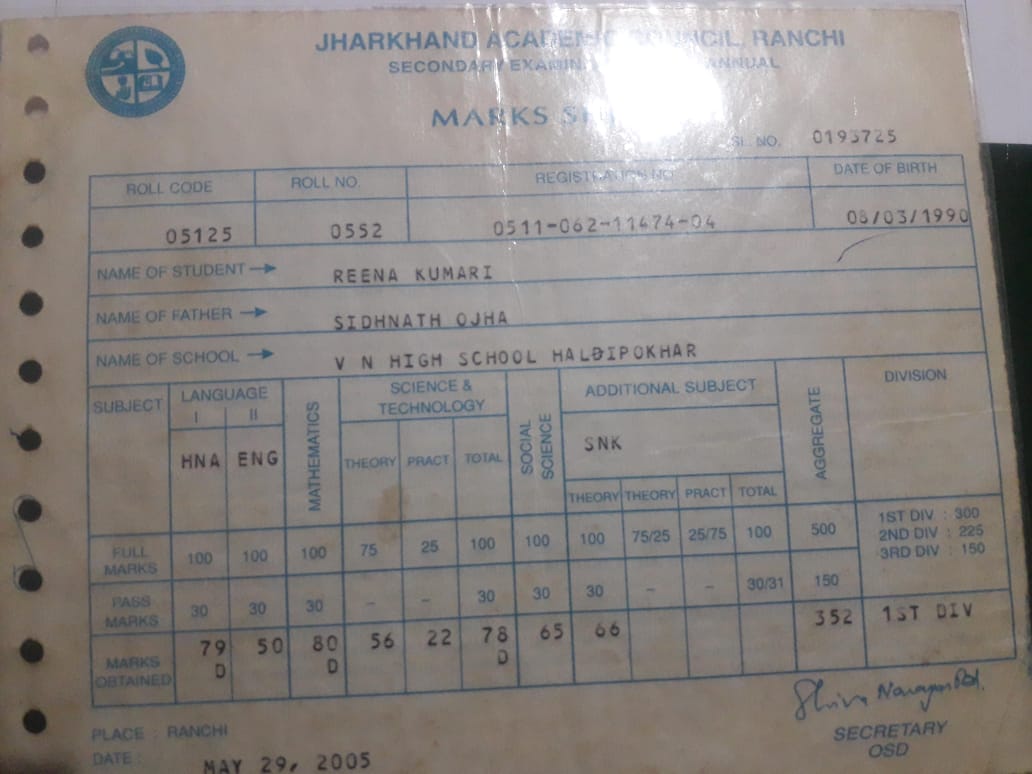 JHARKHAND ACADEMIC COUNCIL, RANCHI
SECONDARY ANNUAL
MARKS
SL. NO. 0193725
ROLL CODE ROLL NO. REGISTRATION NO. DATE OF BIRTH
05125 0552 0511-062-11474-04 08/03/1990
NAME OF STUDENT → REENA KUMARI
NAME OF FATHER → SIDHNATH OJHA
NAME OF SCHOOL → V N HIGH SCHOOL HALDIPOKHAR
SUBJECT LANGUAGE MATHEMATICS SCIENCE & TECHNOLOGY SOCIAL SCIENCE ADDITIONAL SUBJECT AGGREGATE DIVISION
I II
HNA ENG THEORY PRACT TOTAL SNK
THEORY THEORY PRACT TOTAL
FULL MARKS 100 100 100 75 25 100 100 100 75/25 25/75 100 500
1ST DIV : 300
2ND DIV : 225
3RD DIV : 150
PASS MARKS 30 30 30 - - 30 30 30 - - 30/31 150
MARKS OBTAINED 79 50 80 56 22 78 65 66 352 1ST DIV
D D D
Shiva Narayan
PLACE : RANCHI
SECRETARY
OSD
DATE : MAY 29, 2005